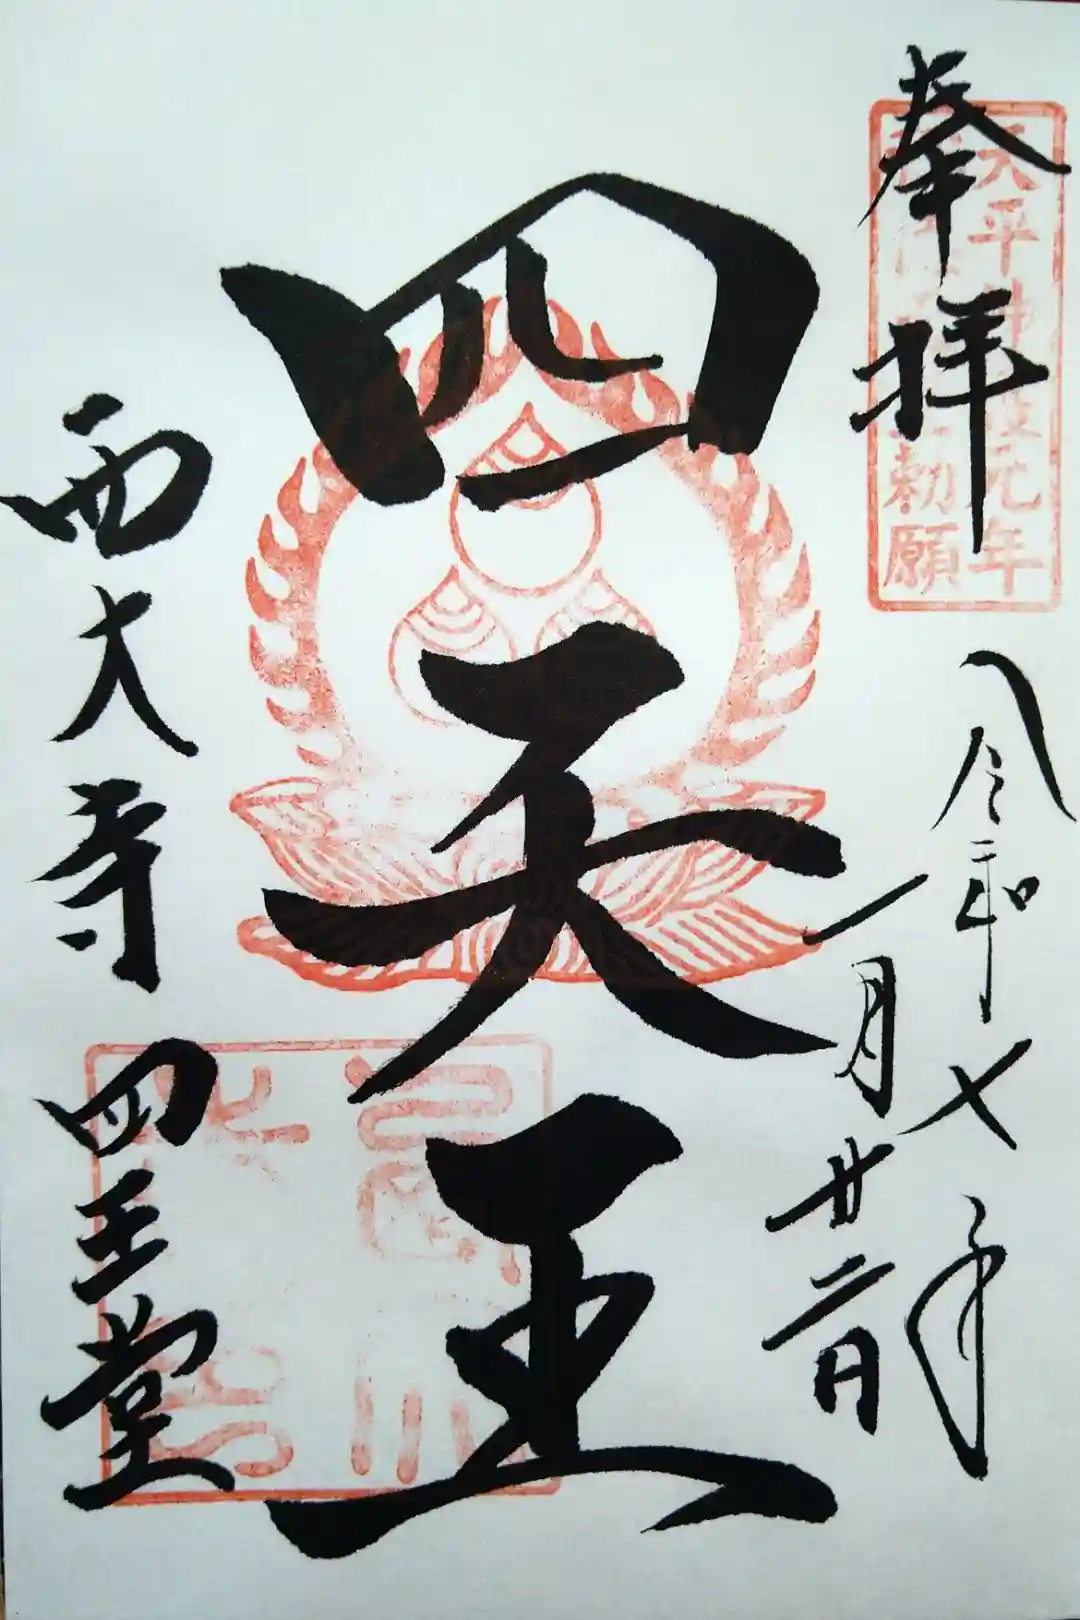 奉拝
天平神護元年
勅願
令和七年
一月廿二日
四天王
西大寺 四王堂